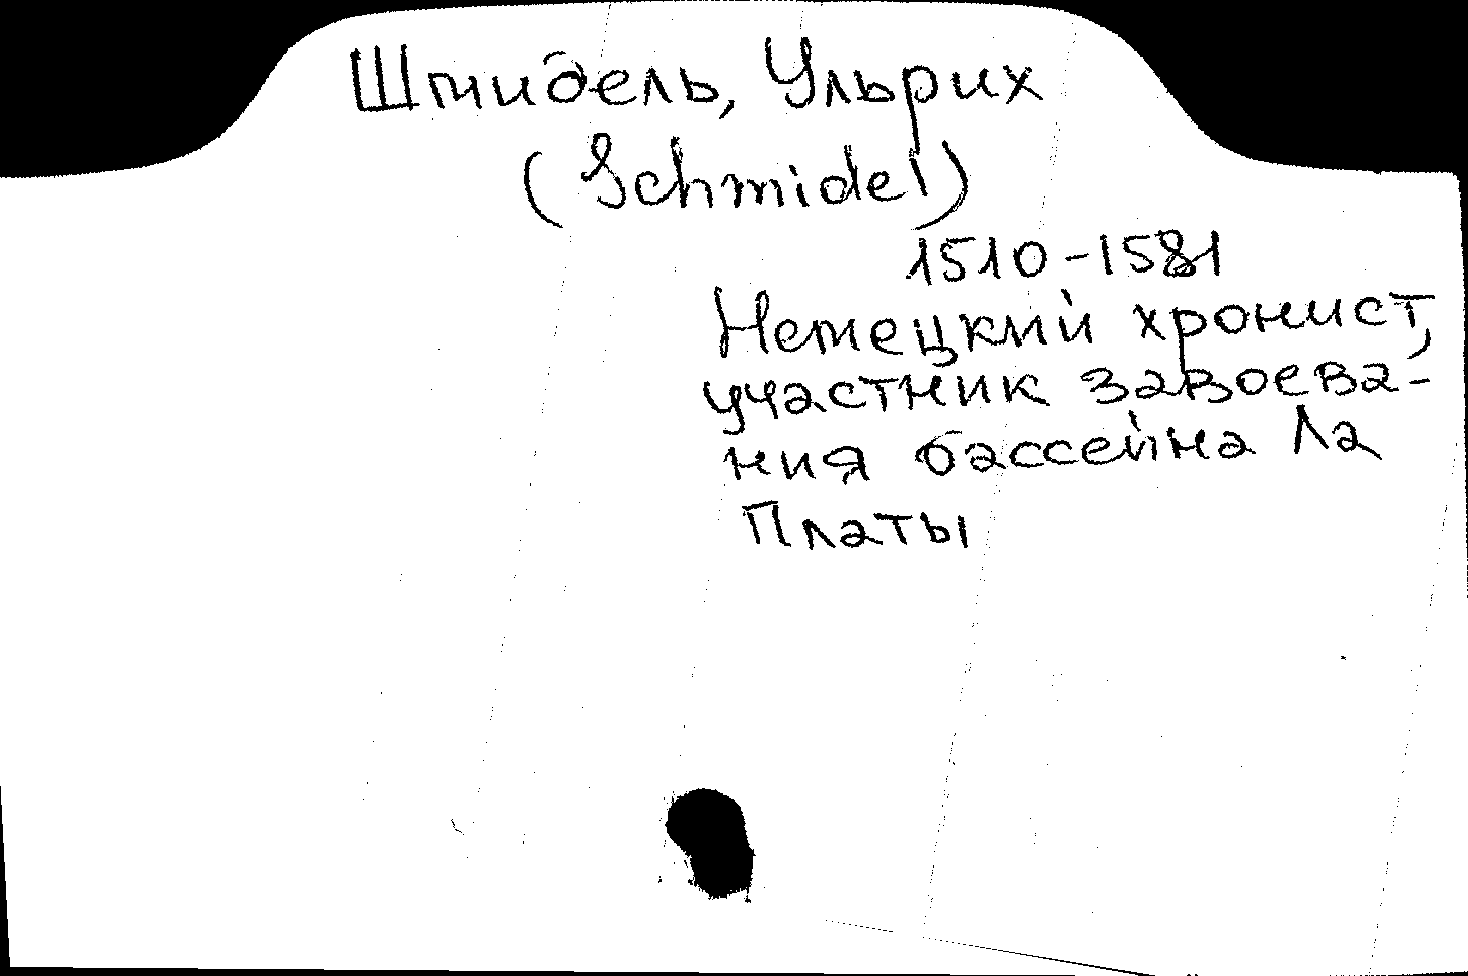 Шмидель, Ульрих
(Schmidel)
1510-1581
Немецкий хронист,
участник завоева-
ния бассейна Ла
Платы